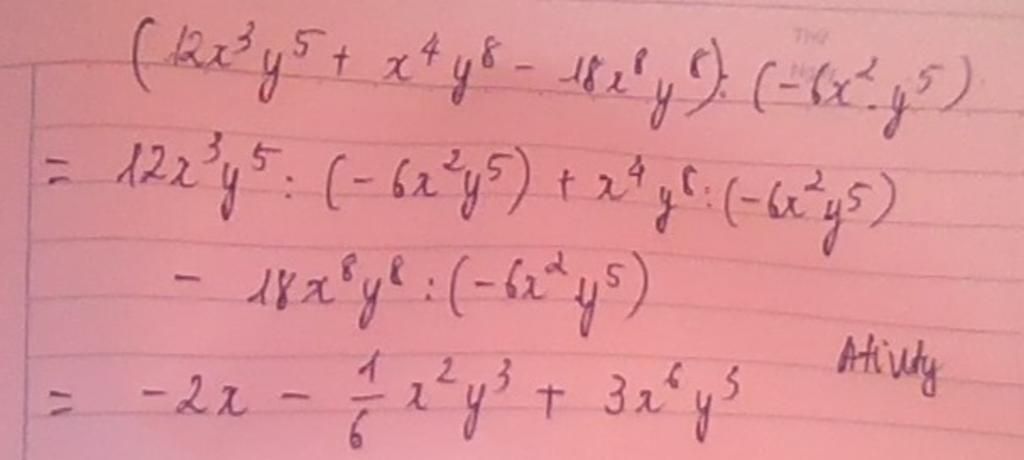 (12x³y⁵ + x⁴y⁸ - 18x⁸y⁸) : (-6x².y⁵)
= 12x³y⁵ : (-6x²y⁵) + x⁴y⁸ : (-6x²y⁵)
- 18x⁸y⁸ : (-6x²y⁵)
= -2x - 1/6 x²y³ + 3x⁶y³
Ativity